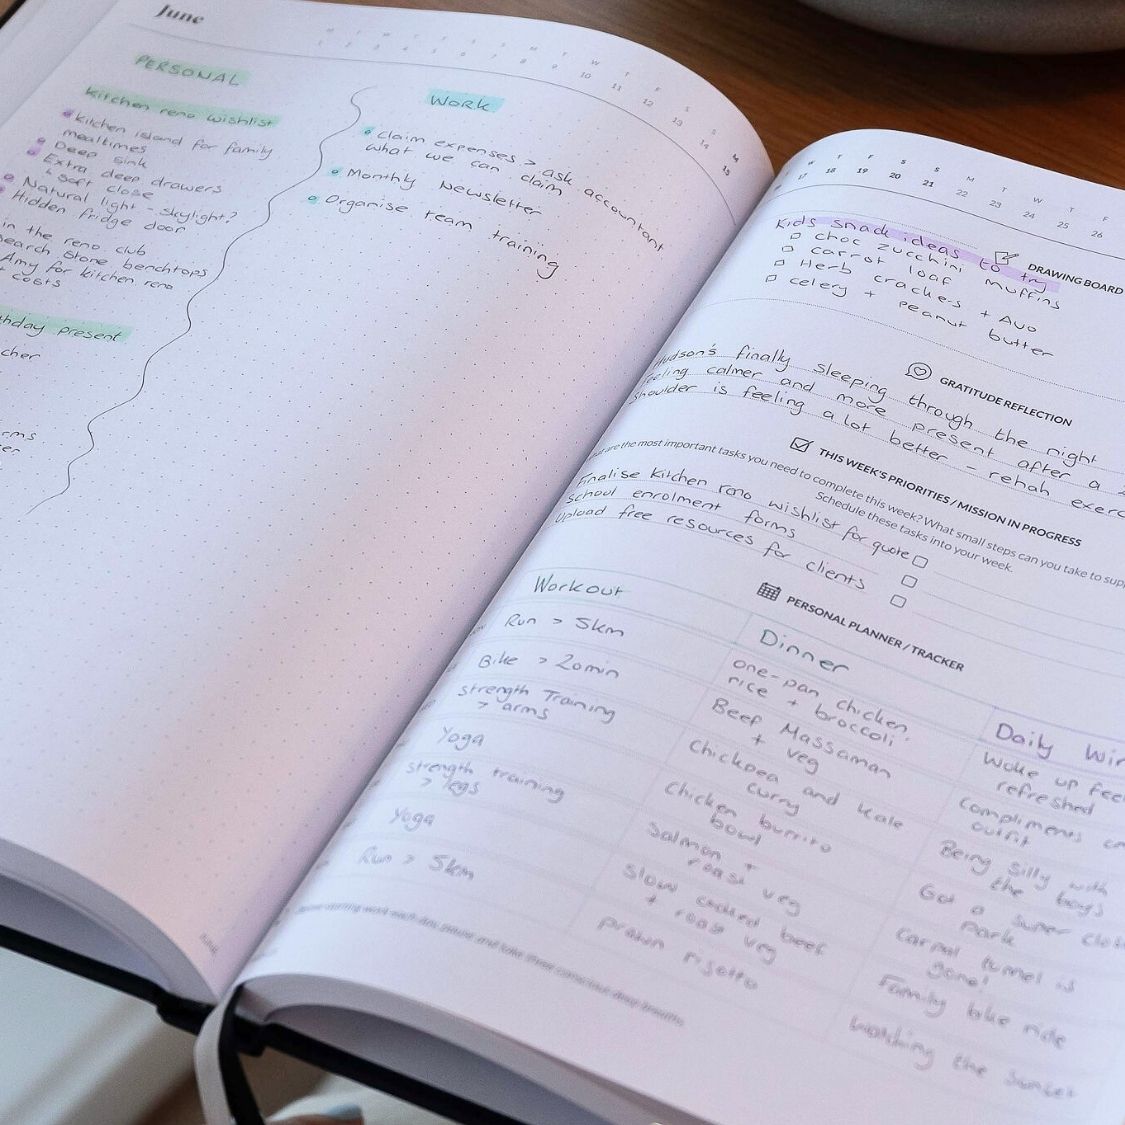 June
M T W T F S S M T W T F S S M
1 2 3 4 5 6 7 8 9 10 11 12 13 14 15
PERSONAL
Kitchen reno wishlist
Kitchen island for family
mealtimes
Deep sink
Extra deep drawers
↳ soft close
Natural light - skylight?
Hidden fridge door
in the reno club
search stone benchtops
Amy for kitchen reno
+ costs
thday present
cher
rms
ter
WORK
claim expenses > ask accountant
what we can claim
Monthly Newsletter
Organise team training
June
W T F S S M T W T F
17 18 19 20 21 22 23 24 25 26
DRAWING BOARD
Kids snack ideas to try
choc zucchini muffins
carrot loaf
Herb crackers + Avo
celery + peanut butter
GRATITUDE REFLECTION
Hudson's finally sleeping through the night
feeling calmer and more present after a
shoulder is feeling a lot better - rehab exerc
THIS WEEK'S PRIORITIES / MISSION IN PROGRESS
are the most important tasks you need to complete this week? What small steps can you take to supp
Schedule these tasks into your week.
Finalise kitchen reno wishlist for quote
School enrolment forms
Upload free resources for clients
PERSONAL PLANNER / TRACKER
Workout Dinner Daily Win
Run > 5km one-pan chicken, rice + broccoli Woke up feel refreshed
Bike > 20min Beef Massaman + veg compliments on outfit
strength Training > arms Chickpea and kale curry Being silly with the boys
Yoga chicken burrito bowl Got a super clo park
strength training > legs Salmon + roast veg Carpal tunnel is gone!
Yoga Slow cooked beef + roast veg Family bike ride
Run > 5km prawn risotto Watching the sunset